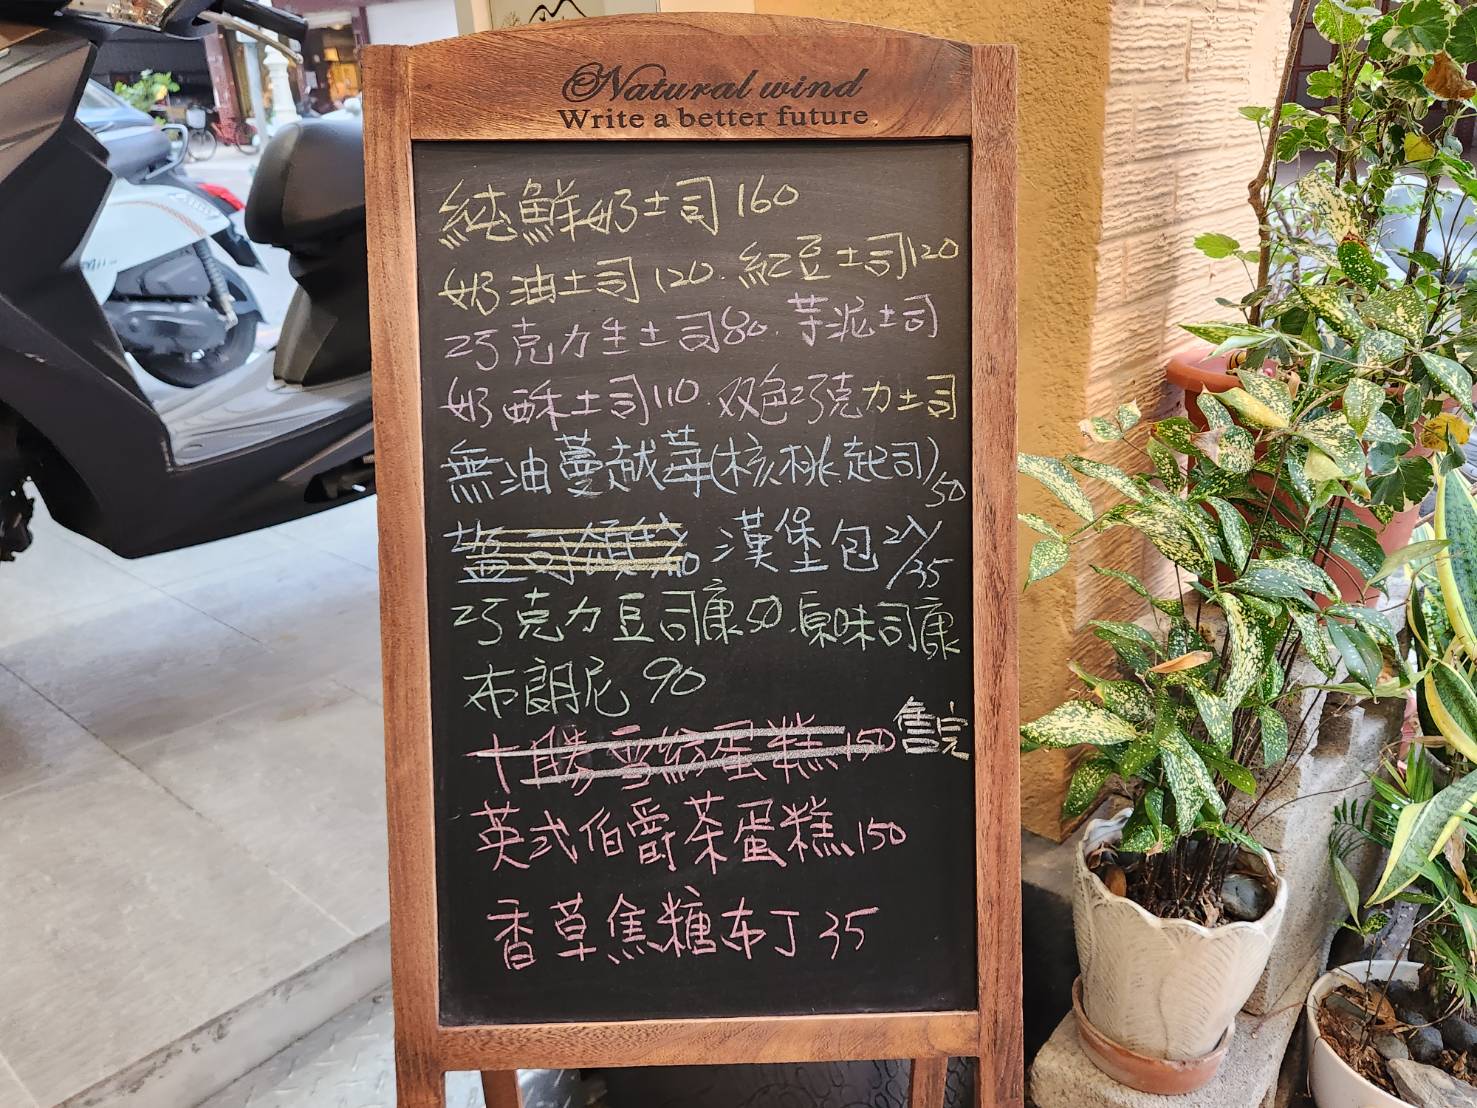 Natural wind
Write a better future
純鮮奶土司 160
奶油土司 120. 紅豆土司120
巧克力生土司80. 芋泥土司
奶酥土司110. 双色巧克力土司
無油蔓越莓(核桃.起司)/50
鹽可頌 漢堡包2入/35
巧克力豆司康50.原味司康
布朗尼 90
十勝雪紡蛋糕.150 售完
英式伯爵茶蛋糕.150
香草焦糖布丁35